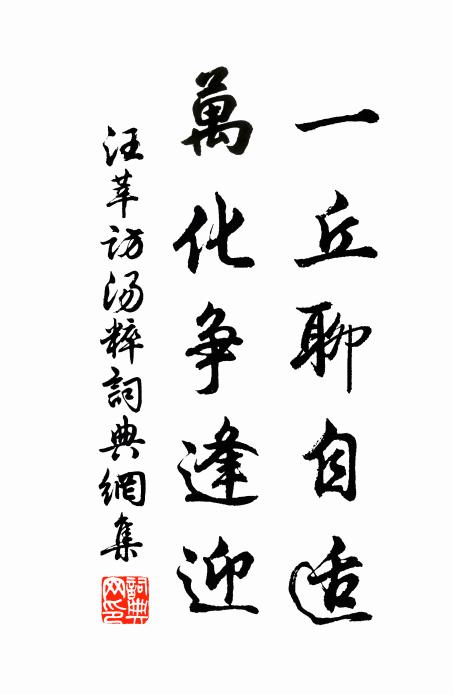 一丘聊自适
萬化争逢迎
汪莘访汤粹詞典網集
詞典网印